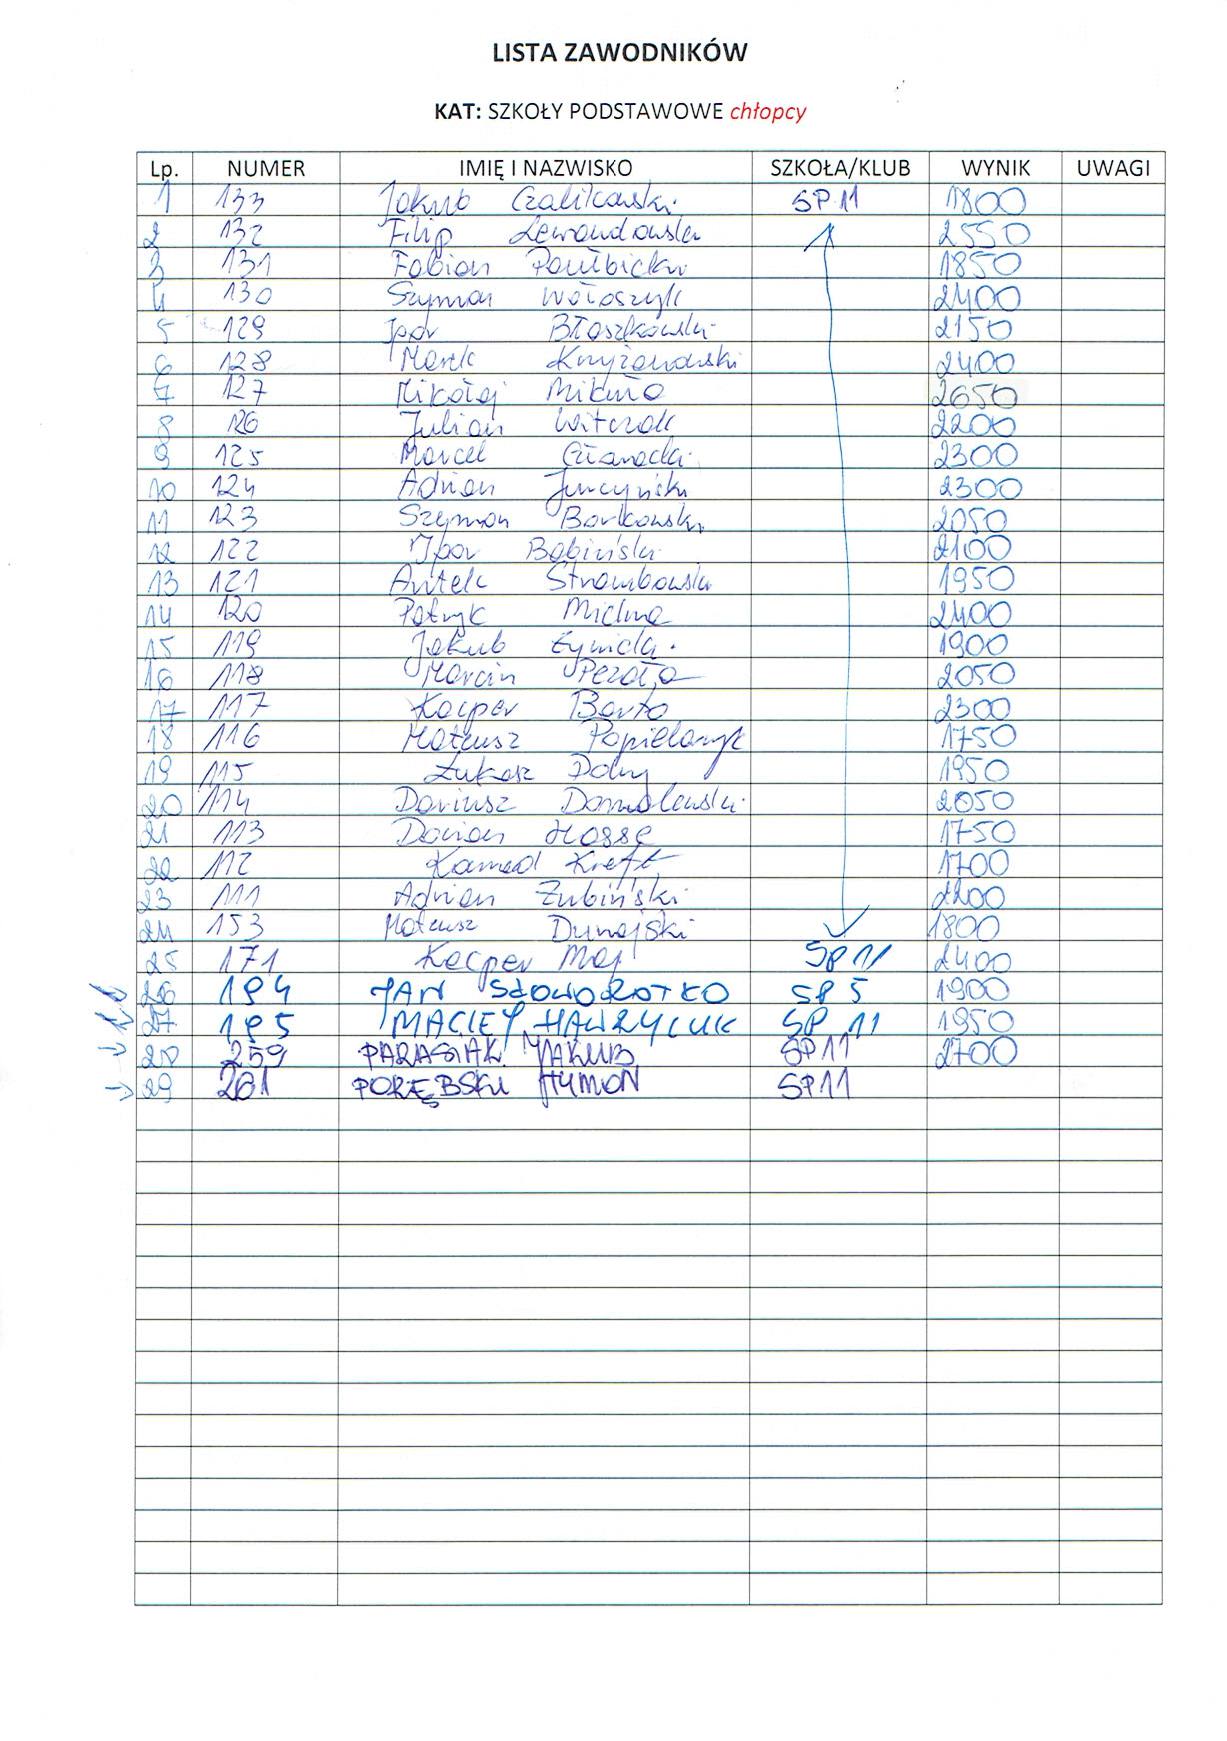 LISTA ZAWODNIKÓW
KAT: SZKOŁY PODSTAWOWE chłopcy
Lp. NUMER IMIĘ I NAZWISKO SZKOŁA/KLUB WYNIK UWAGI
1 133 Jakub SP 11 1800
2 132 Filip Lewandowski 2550
3 131 Fabian 1850
4 130 Szymon Wołoszyk 2400
5 129 Igor Błaszkowski 2150
6 128 Marek Krzyżanowski 2400
7 127 Mikołaj 2650
8 126 Julian Witczak 2200
9 125 Marcel 2300
10 124 Adrian Jurczyński 2300
11 123 Szymon Borkowski 2050
12 122 Igor Babiński 2100
13 121 Antek Strombowski 1950
14 120 Patryk 2400
15 119 Jakub 1900
16 118 Marcin 2050
17 117 Kacper 2300
18 116 Mateusz Popielarczyk 1750
19 115 Łukasz 1950
20 114 Dariusz 2050
21 113 Dorian Hosse 1750
22 112 Konrad Kreft 1700
23 111 Adrian Żubiński 2200
24 153 Mateusz Dunajski 1800
25 171 Kacper Maj SP 11 2400
26 194 JAN SŁOWOROTKO SP 5 1900
27 195 MACIEJ HAWRYLUK SP 11 1950
28 259 PARASIAK JAKUB SP11 2700
29 261 PORĘBSKI SP11